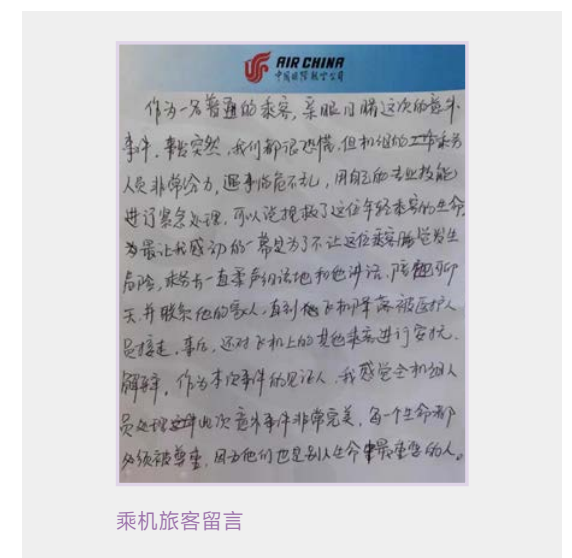 AIR CHINA
中国国际航空公司
作为一名普通的乘客，亲眼目睹这次的意外
事件，事发突然，我们都很恐慌，但机组的乘务
人员非常给力，遇事临危不乱，用自己的专业技能
进行紧急处理，可以说挽救了这位年轻乘客的生命
最让我感动的一幕是为了不让这位乘客睡觉发生
危险，乘务长一直柔声细语地和他讲话，陪他聊
天，并联系他的家人，直到飞机降落被医护人
员接走，事后，还对飞机上的其他乘客进行安抚，
解释，作为本次事件的见证人，我感觉全机组人
员处理此次意外事件非常完美，每一个生命都
必须被尊重，因为他们也是别人生命中最重要的人。
乘机旅客留言